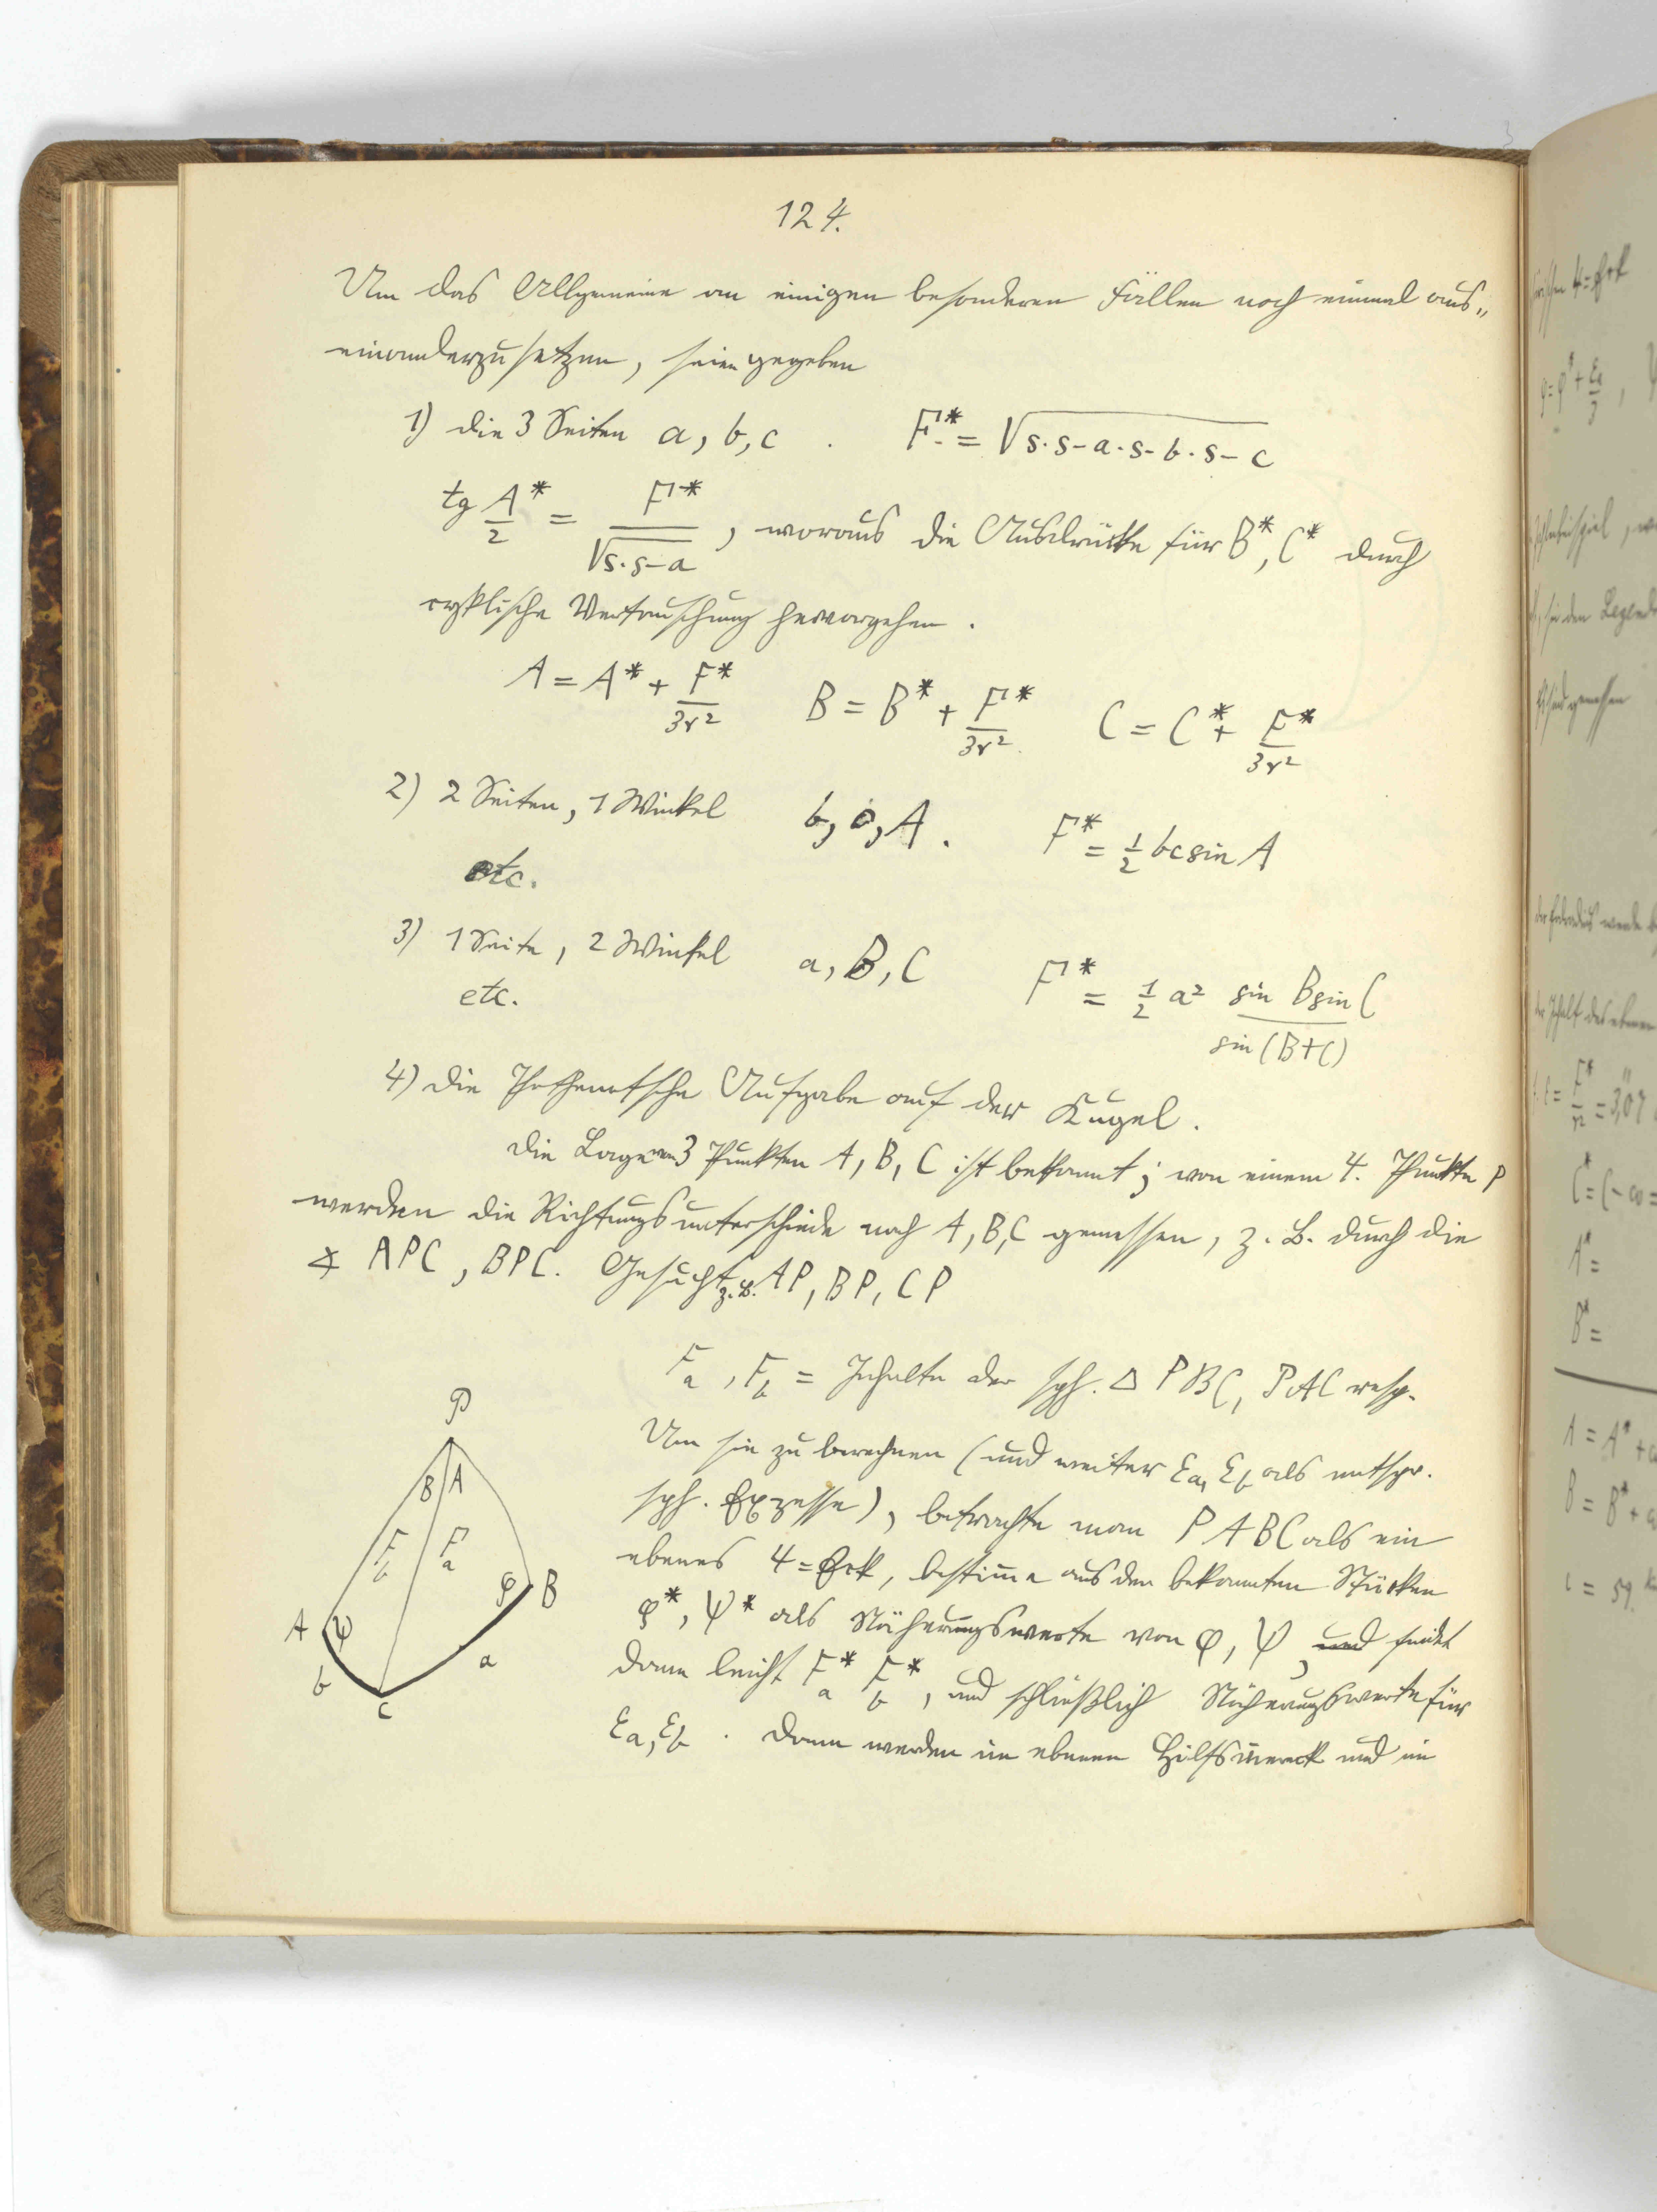 124.
Um das Allgemeine an einigen besonderen Fällen noch einmal aus„
einanderzusetzen, seien gegeben
1) die 3 Seiten a, b, c . F* = √s·s-a·s-b·s-c
tg A*/2 = F*/√s·s-a , woraus die Ausdrücke für B*, C* durch
cyklische Vertauschung hervorgehen .
A = A* + F*/3r² B = B* + F*/3r² C = C* + F*/3r²
2) 2 Seiten, 1 Winkel b, c, A . F* = ½ bc sin A
etc.
3) 1 Seite, 2 Winkel a, B, C F* = ½ a² sin B sin C / sin (B+C)
etc.
4) die Pothenotsche Aufgabe auf der Kugel .
Die Lage von 3 Punkten A, B, C ist bekannt; von einem 4. Punkte P
werden die Richtungsunterschiede nach A, B, C gemessen, z. B. durch die
∢ APC, BPC. Gesucht z.B. AP, BP, CP
Fa , Fb = Inhalte der sph. △ PBC, PAC resp.
Um sie zu berechnen (und weiter Ea, Eb als entspr.
sph. Exzesse), betrachte man PABC als ein
ebenes 4=Eck, bestim̄e aus den bekannten Stücken
φ*, ψ* als Näherungswerte von φ, ψ, und findet
dann leicht Fa* Fb*, und schließlich Näherungswerte für
Ea, Eb . Dann werden im ebenen Hülfsviereck und im
P
B A
Fb Fa
φ B
A ψ
b a
C